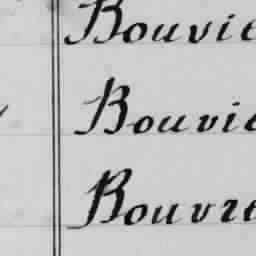 Bouvie
Bouvie
Bouvre